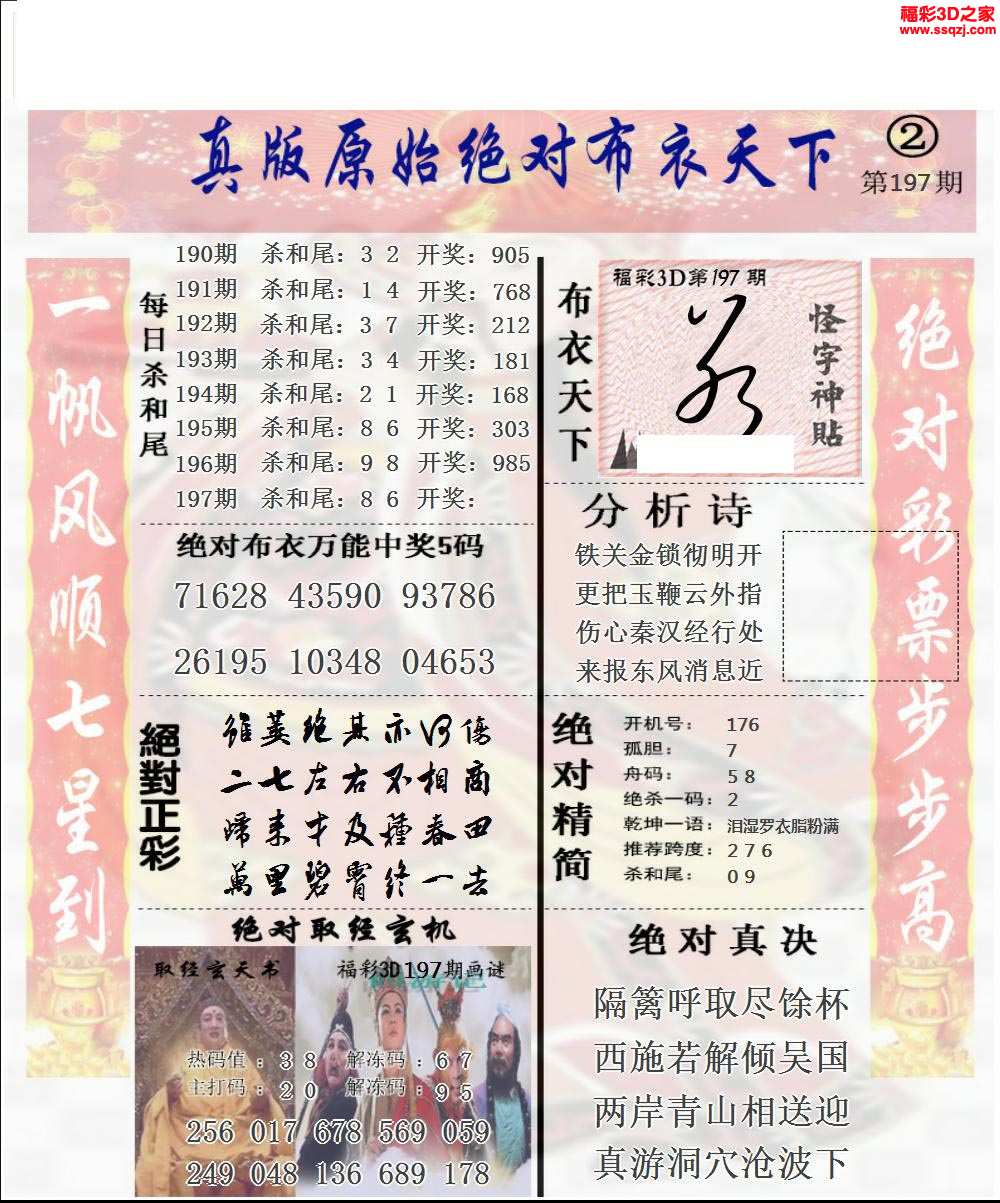 福彩3D之家
www.ssqzj.com
真版原始绝对布衣天下
②
第197期
一帆风顺七星到
每日杀和尾
190期 杀和尾：3 2 开奖：905
191期 杀和尾：1 4 开奖：768
192期 杀和尾：3 7 开奖：212
193期 杀和尾：3 4 开奖：181
194期 杀和尾：2 1 开奖：168
195期 杀和尾：8 6 开奖：303
196期 杀和尾：9 8 开奖：985
197期 杀和尾：8 6 开奖：
绝对布衣万能中奖5码
71628 43590 93786
26195 10348 04653
絕對正彩
雖萎绝其亦何傷
二七左右不相商
歸来才及種春田
萬里碧霄终一去
绝对取经玄机
取经玄天书
福彩3D197期画谜
热码值：3 8 解冻码：6 7
主打码：2 0 解冻码：9 5
256 017 678 569 059
249 048 136 689 178
布衣天下
福彩3D第197期
怪字神貼
分析诗
铁关金锁彻明开
更把玉鞭云外指
伤心秦汉经行处
来报东风消息近
绝对精简
开机号： 176
孤胆： 7
舟码： 5 8
绝杀一码：2
乾坤一语：泪湿罗衣脂粉满
推荐跨度：2 7 6
杀和尾： 0 9
绝对真决
隔篱呼取尽馀杯
西施若解倾吴国
两岸青山相送迎
真游洞穴沧波下
绝对彩票步步高